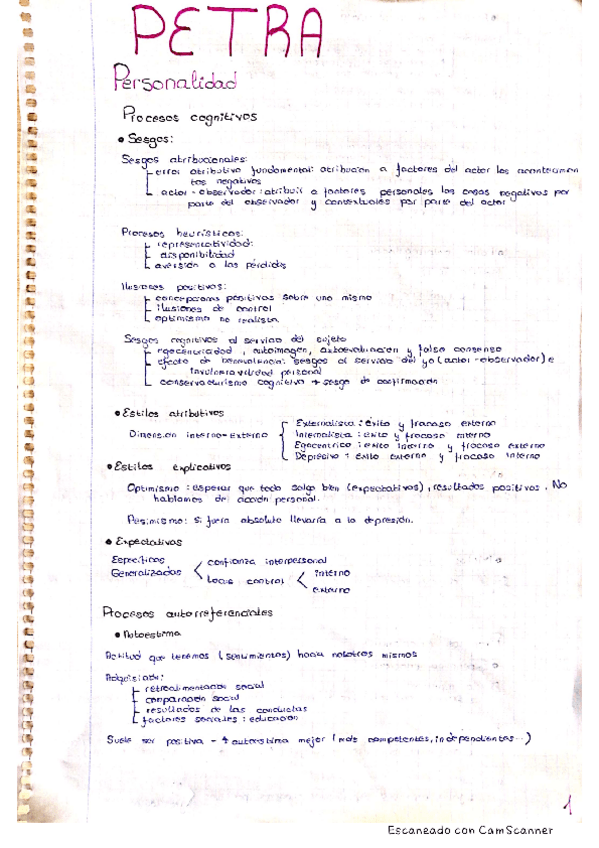 PETRA
Personalidad
Procesos cognitivos
• Sesgos:
Sesgos atribucionales:
error atributivo fundamental: atribución a factores del actor los acontecimien
tos negativos
actor - observador: atribuir a factores personales las cosas negativas por
parte del observador y contextuales por parte del actor
Procesos heurísticos:
representatividad:
disponibilidad
aversión a las pérdidas
Ilusiones positivas:
concepciones positivas sobre uno mismo
ilusiones de control
optimismo no realista
Sesgos cognitivos al servicio del sujeto
egocentricidad, autoimagen, autoevaluación y falso consenso
efecto de benevolencia: sesgos al servicio del yo (actor - observador) e
invulnerabilidad personal
conservadurismo cognitivo → sesgo de confirmación
• Estilos atributivos
Dimensión interno-externo
Externalista: éxito y fracaso externo
Internalista: éxito y fracaso interno
Egocéntrico: éxito interno y fracaso externo
Depresivo: éxito externo y fracaso interno
• Estilos explicativos
Optimismo: esperar que todo salga bien (expectativas), resultados positivos. No
hablamos de acción personal.
Pesimismo: si fuera absoluto llevaría a la depresión.
• Expectativas
Específicas
Generalizadas
confianza interpersonal
locus control
interno
externo
Procesos autorreferenciales
• Autoestima
Actitud que tenemos (sentimientos) hacia nosotros mismos
Adquisición:
retroalimentación social
comparación social
resultados de las conductas
factores sociales: educación
Suele ser positiva - ↑ autoestima mejor (más competentes, independientes...)
1
Escaneado con CamScanner